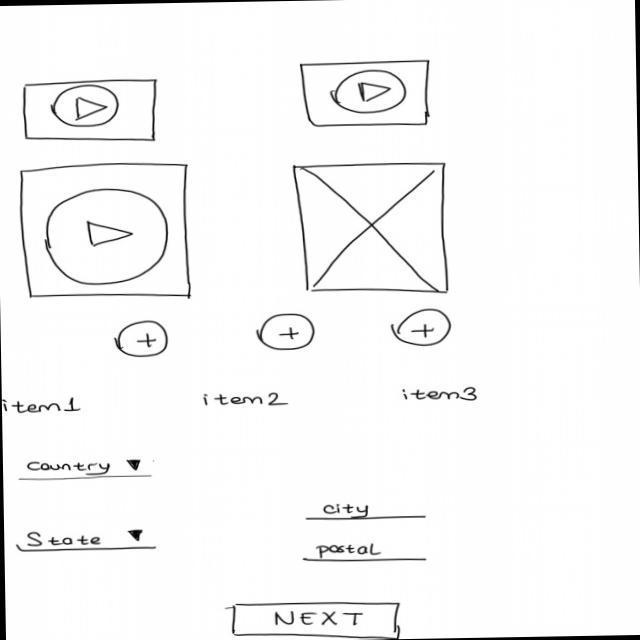 item1 item2 item3
Country
State
city
postal
NEXT